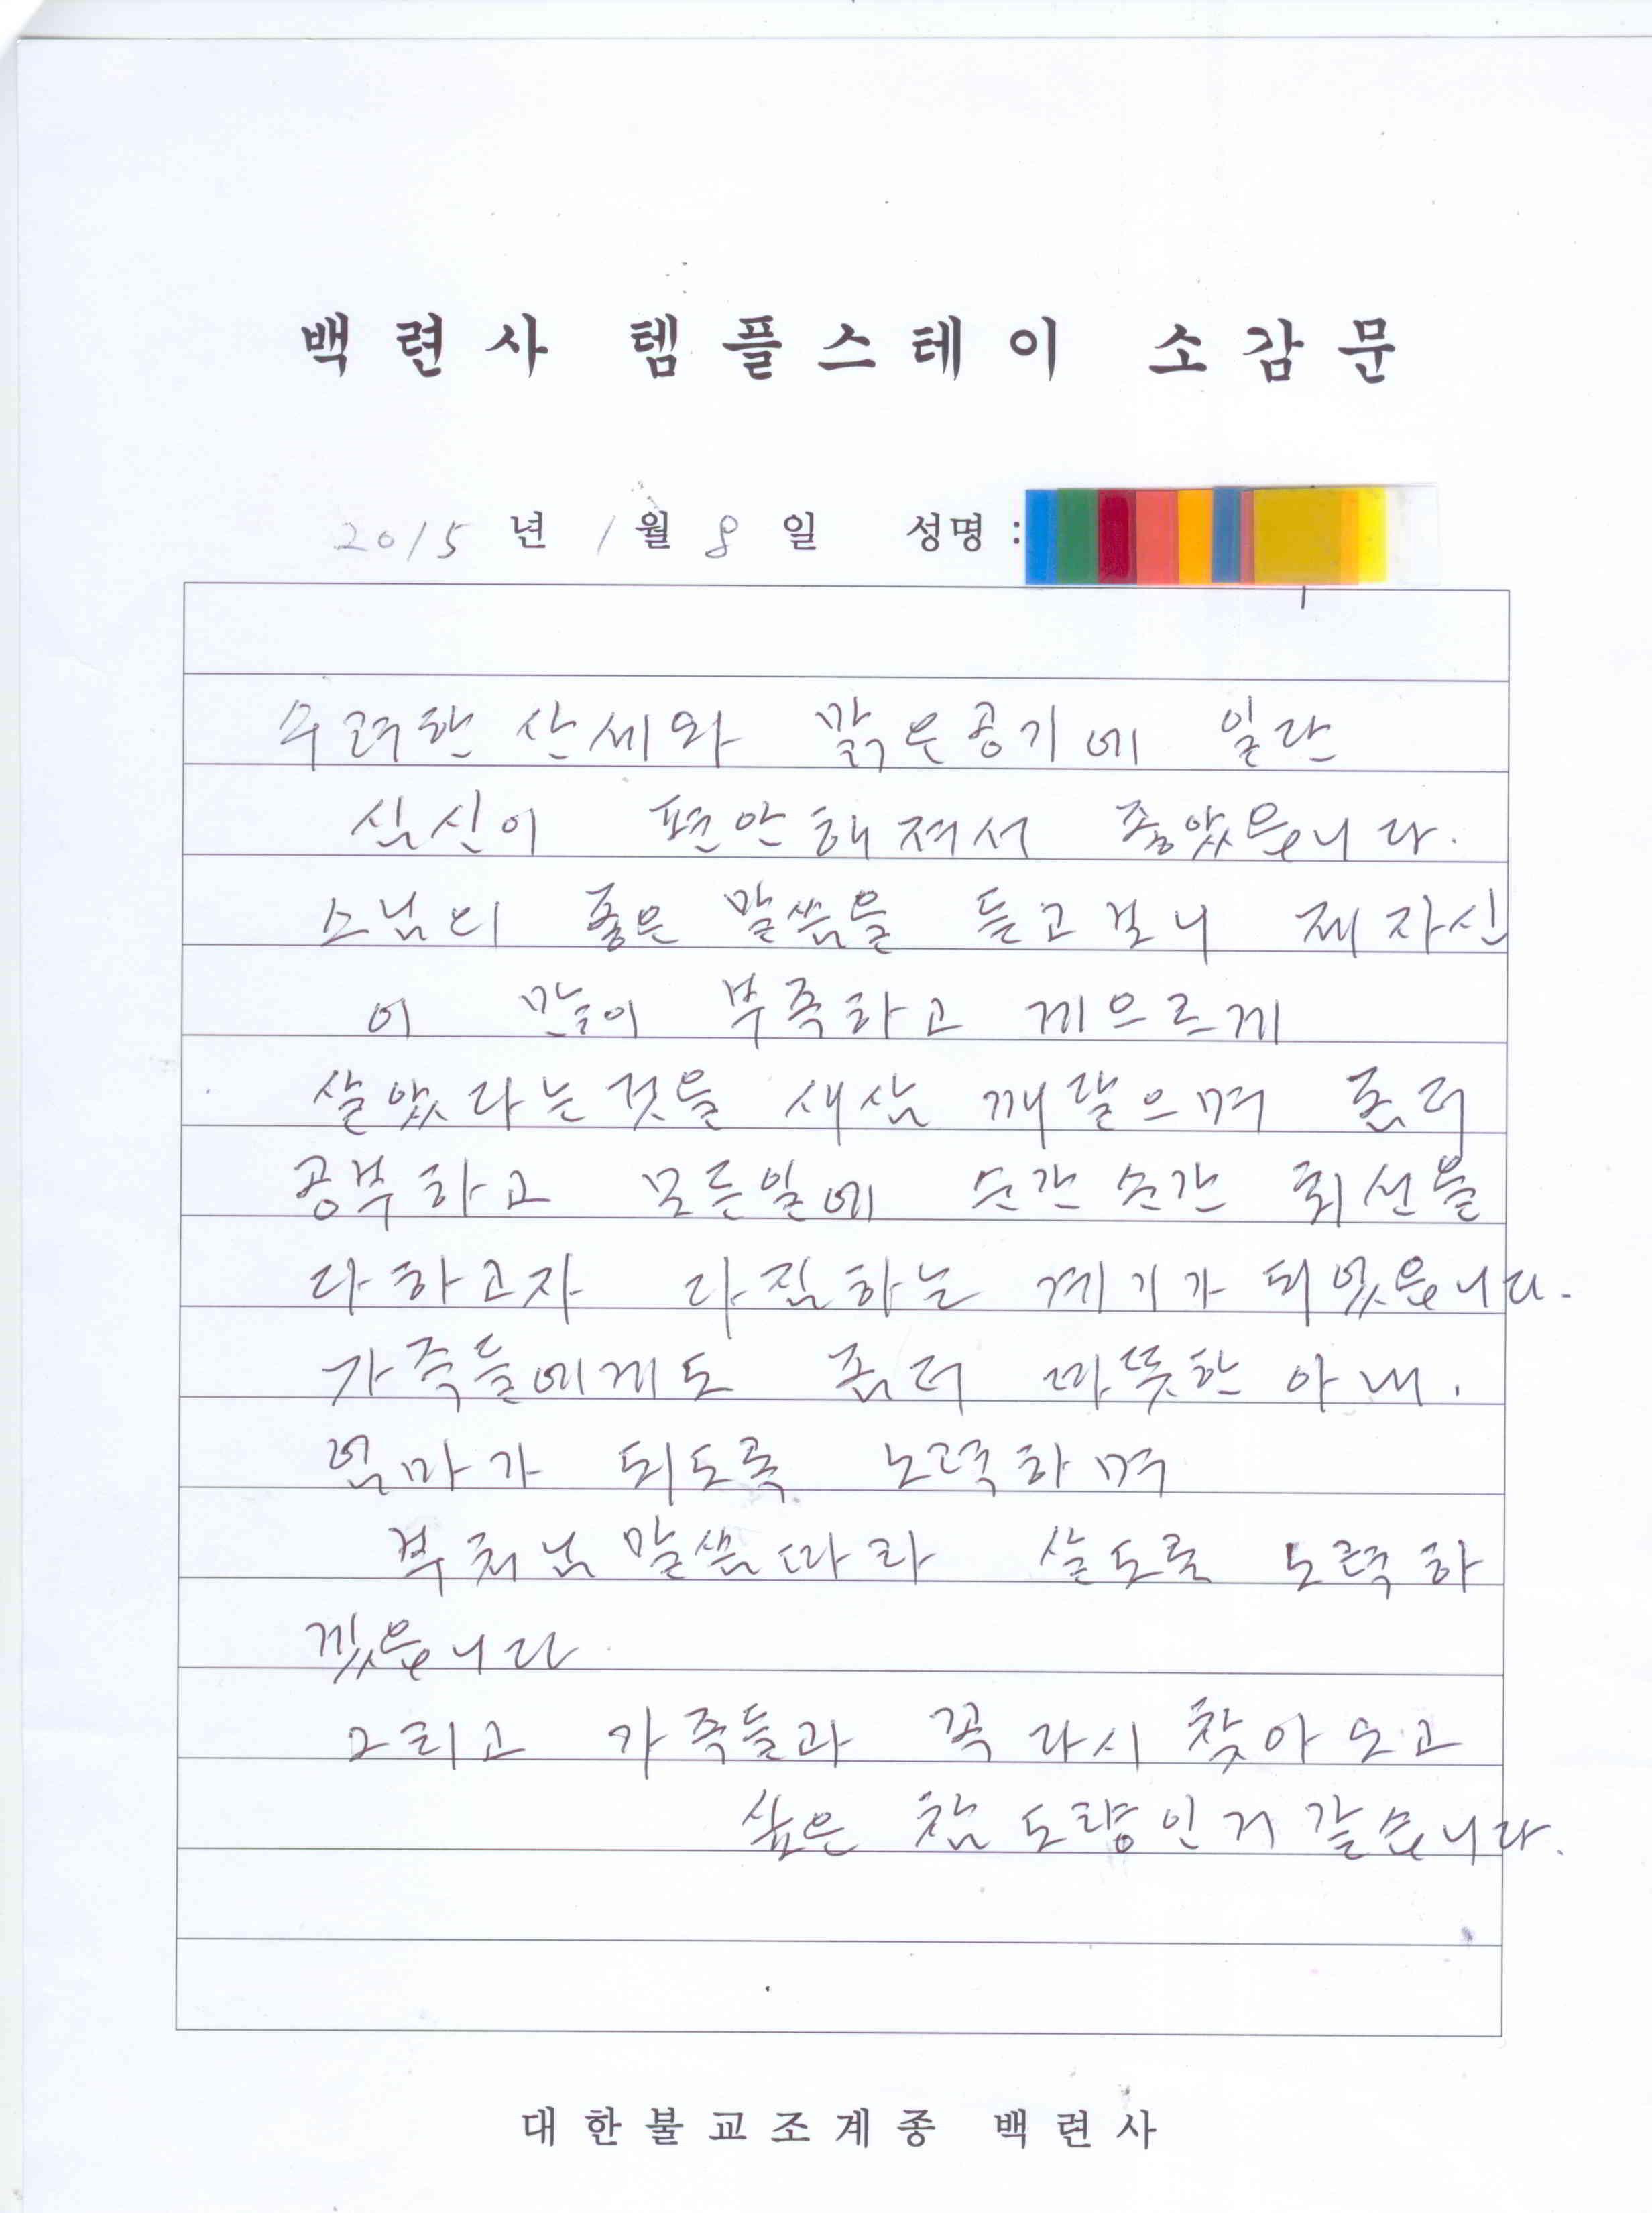 백련사 템플스테이 소감문
2015 년 1 월 8 일 성명 :
수려한 산세와 맑은공기에 일단
심신이 편안해져서 좋았읍니다.
스님의 좋은 말씀을 듣고보니 제자신
이 많이 부족하고 게으르게
살았다는것을 새삼 깨달으며 좀더
공부하고 모든일에 순간순간 최선을
다하고자 다짐하는 계기가 되었읍니다.
가족들에게도 좀더 따뜻한 아내.
엄마가 되도록 노력하며
부처님말씀따라 살도록 노력하
겠읍니다.
그리고 가족들과 꼭 다시 찾아오고
싶은 참 도량인거 같습니다.
대한불교조계종 백련사